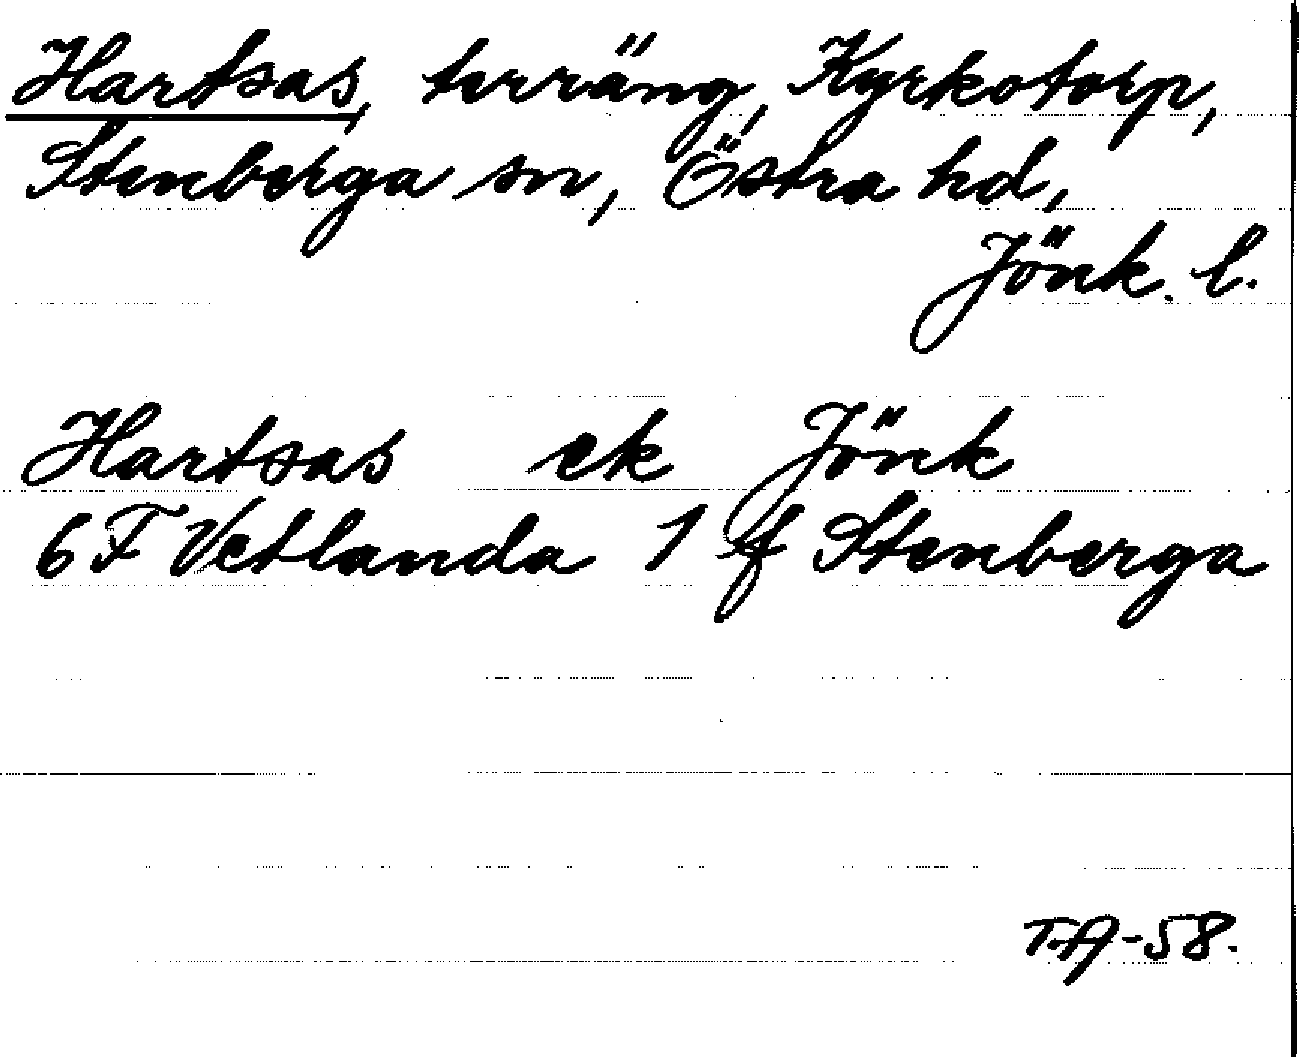 Hartsas, terräng, Kyrkotorp,
Stenberga sn, Östra hd,
Jönk. l.
Hartsas ek Jönk
6 F Vetlanda 1 f Stenberga
TA-58.